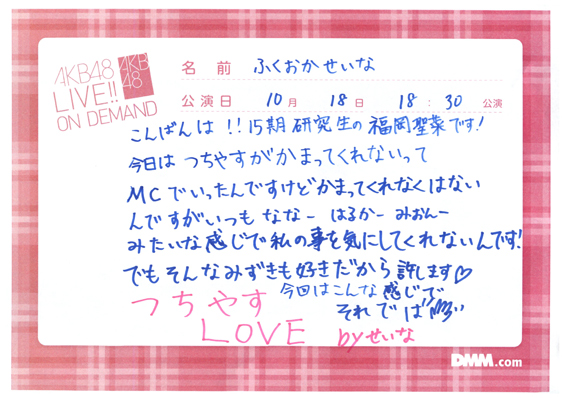 AKB48
LIVE!!
ON DEMAND
AKB
48
名 前 ふくおか せいな
公演日 10月 18日 18:30 公演
こんばんは!!15期研究生の福岡聖菜です!
今日は つちやすがかまってくれないって
MCでいったんですけどかまってくれなくはない
んですがいつも ななー はるかー みおんー
みたいな感じで私の事を気にしてくれないんです!
でもそんなみずきも好きだから許します♡
今回はこんな感じで
それでは
つちやす
LOVE byせいな
DMM.com